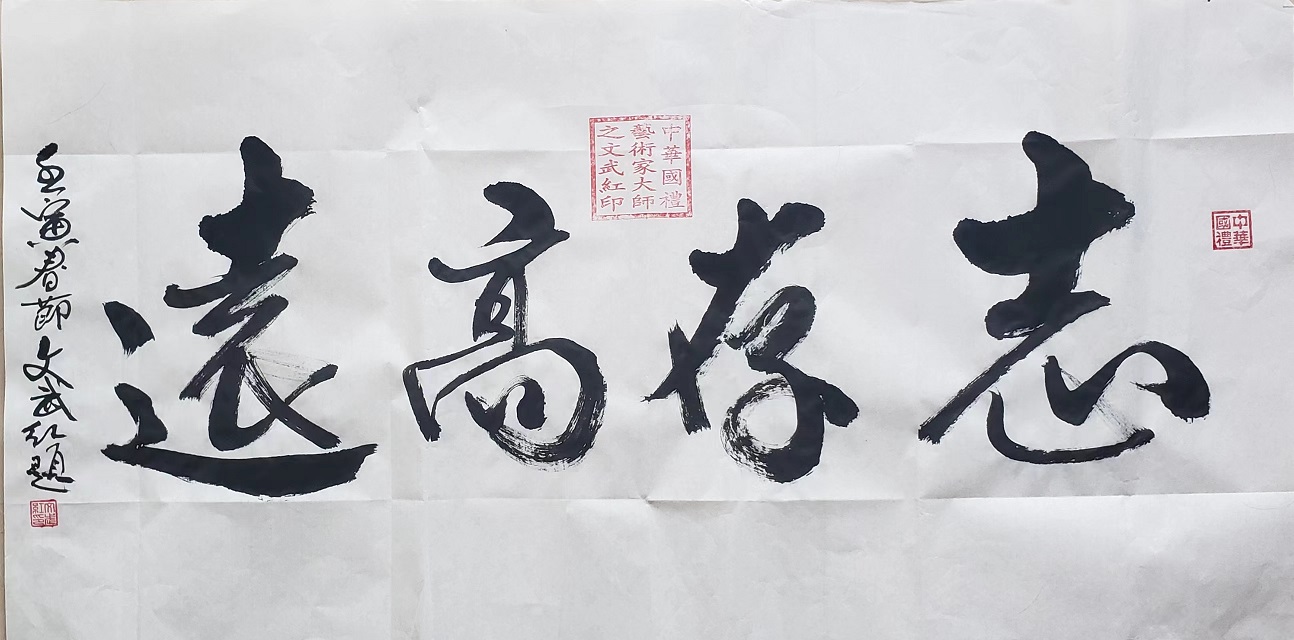 中華
國禮
志存高遠
中華國禮
藝術家大師
之文武紅印
壬寅春節文武紅題
文武
紅印